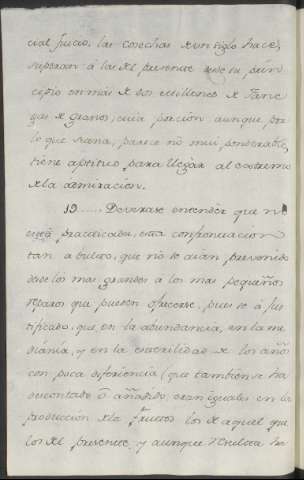 cial Juicio, las cosechas de un siglo hace,
superan á las del presente desde su prin
cipio en más de dos Millones de Fane
gas de granos, cuia porcion aunque por
lo que suena, parece no mui ponderable,
tiene aptitud para llegar al extremo
de la admiracion.
19...... Deverase entender que no
está practicada esta confrontacion
tan a bulto, que no se aian prevenido
desde los mas grandes a los mas pequeños
reparos que pueden ofrecerse, pues se á jus
tificado, que en la abundancia, en la me
diania, y en la esterilidad de los años
con poca diferiencia (que tambien se ha
descontado ó añadido) eran iguales en la
produccion de la frutos los de aquel que
los del presente y aunque resulta ha